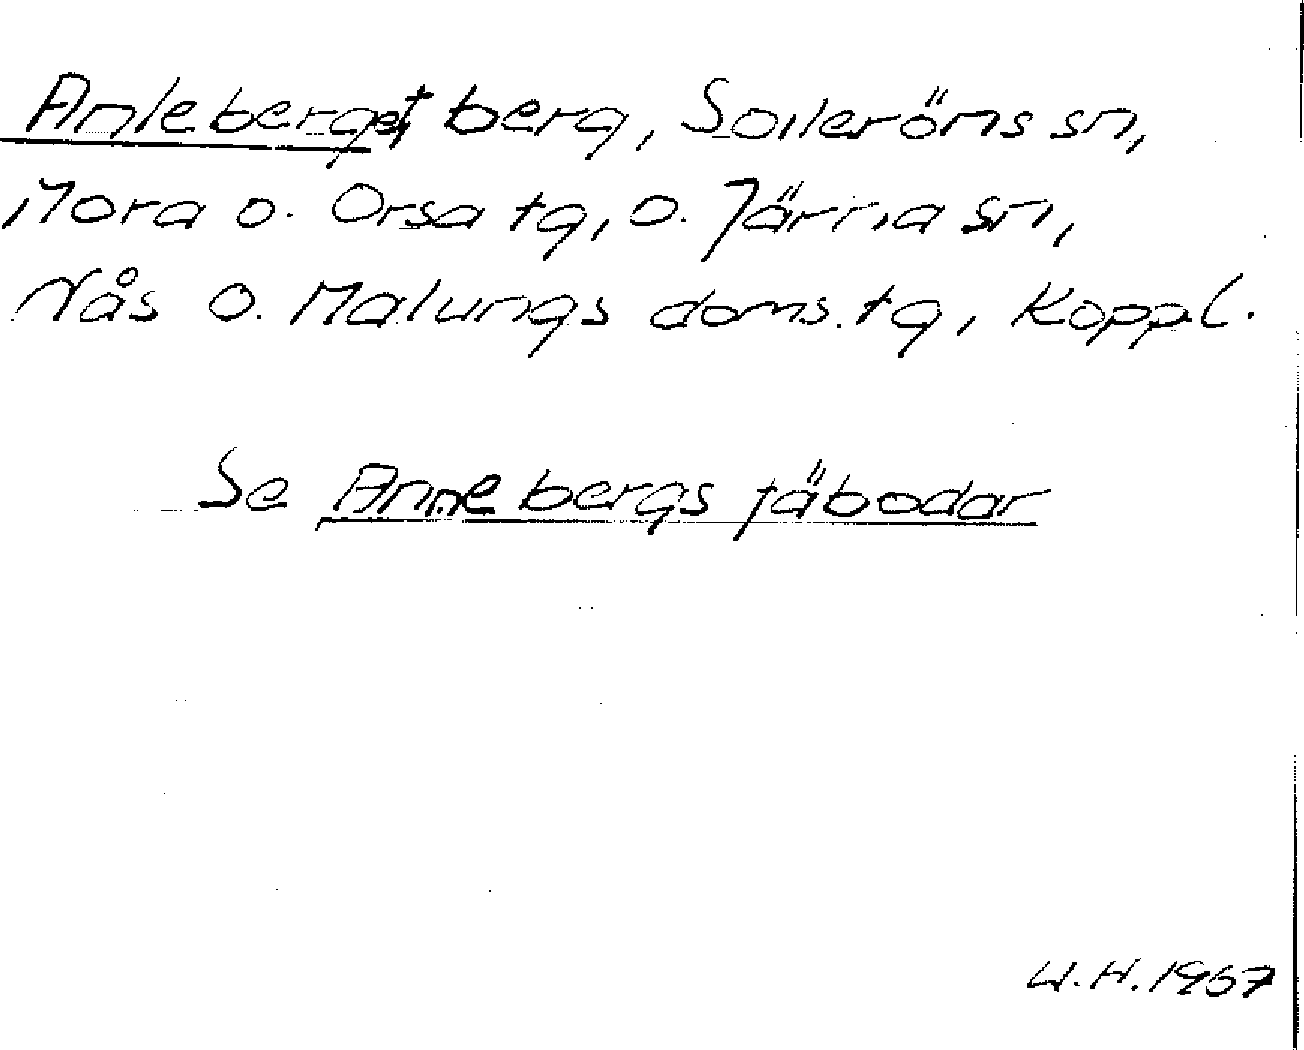 Anleberget berg, Solleröns sn,
Mora o. Orsa tg, o. Järna sn,
Nås o. Malungs doms.tg, Koppl.
Se Annebergs fäbodar
W.H. 1967